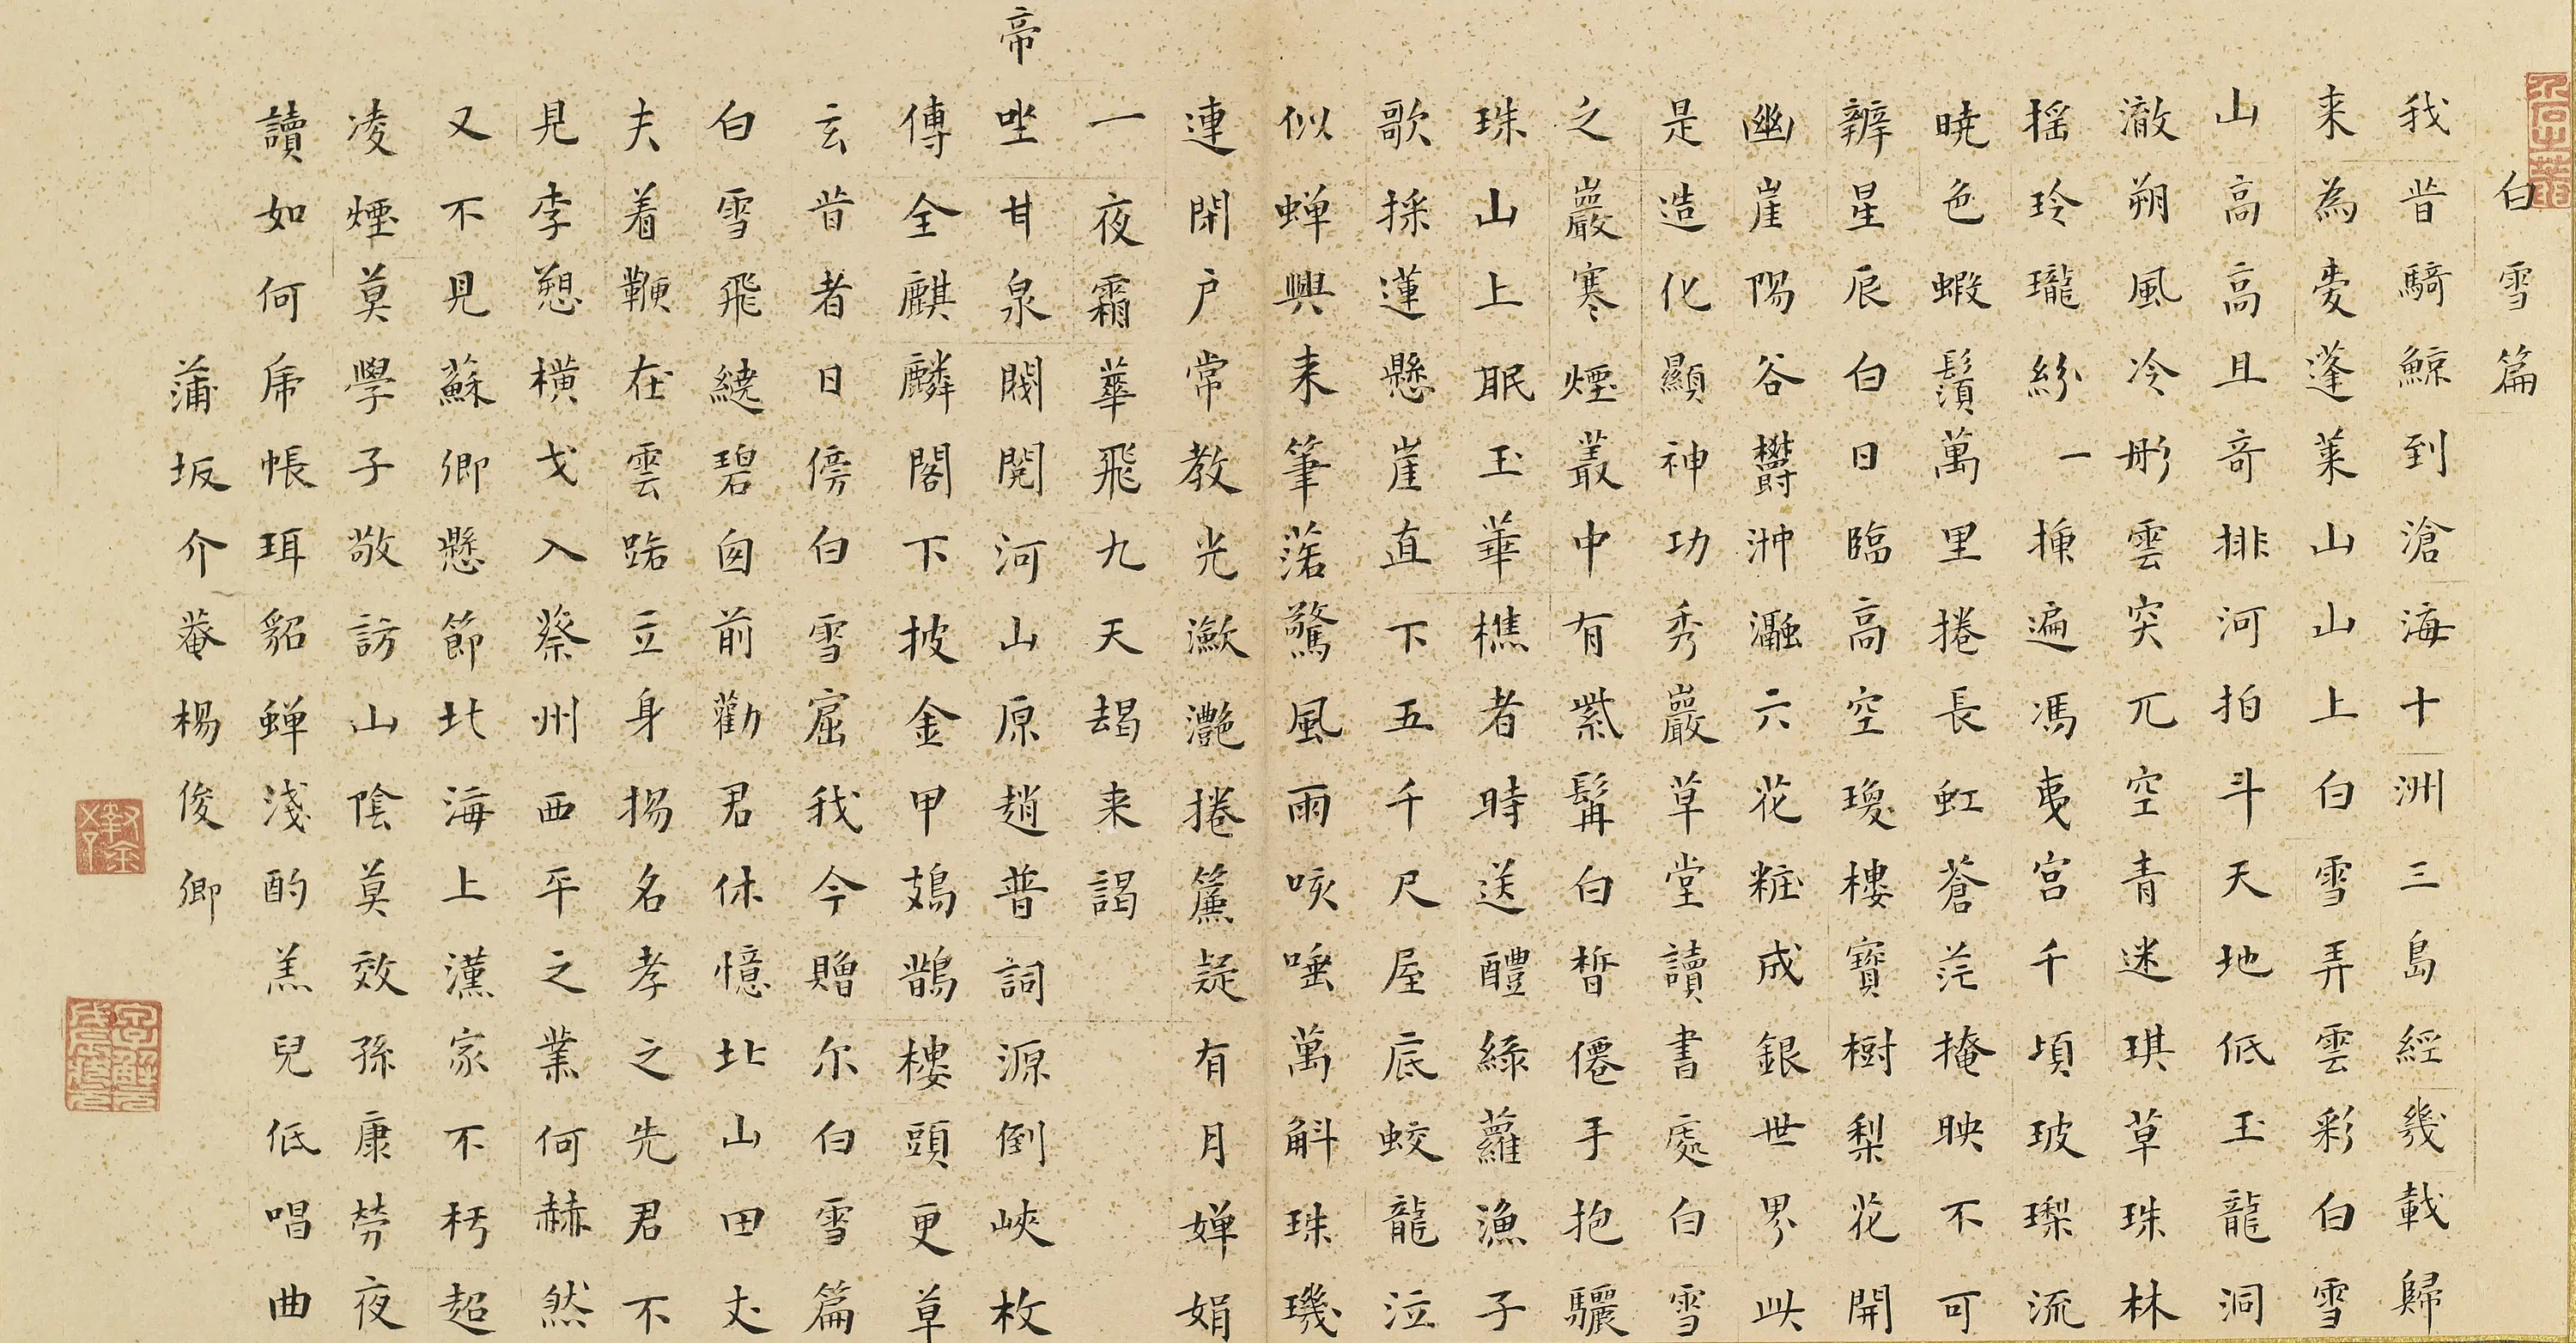 白雪篇
我昔騎鯨到滄海十洲三島經幾載歸
来為愛蓬萊山山上白雪弄雲彩白雪
山高高且奇排河拍斗天地低玉龍洞
澈朔風冷彤雲突兀空青迷琪草珠林
揺玲瓏紛一揀遍馮夷宮千頃玻瓈流
暁色蝦鬚萬里捲長虹蒼茫掩映不可
辨星辰白日臨高空瓊樓寶樹梨花開
幽崖陽谷欝沖瀜六花粧成銀世界此
是造化顯神功秀巖草堂讀書處白雪
之巖寒煙叢中有紫髯白皙僊手抱驪
珠山上眠玉華樵者時送醴綠蘿漁子
歌採蓮懸崖直下五千尺屋底蛟龍泣
似蟬興来筆落驚風雨咳唾萬斛珠璣
連閉戶常教光瀲灧捲簾疑有月嬋娟
一夜霜華飛九天朅来謁
帝坐甘泉閥閱河山原趙普詞源倒峽枚
傳全麒麟閣下披金甲鳷鵲樓頭更草
玄昔者日傍白雪窟我今贈尔白雪篇
白雪飛繞碧囱前勸君休憶北山田丈
夫着鞭在雲路立身揚名孝之先君不
見李愬橫戈入蔡州西平之業何赫然
又不見蘇卿懸節北海上漢家不朽超
凌煙莫學子敬訪山陰莫效孫康勞夜
讀如何虎帳珥貂蟬淺酌羔兒低唱曲
蒲坂介菴楊俊卿